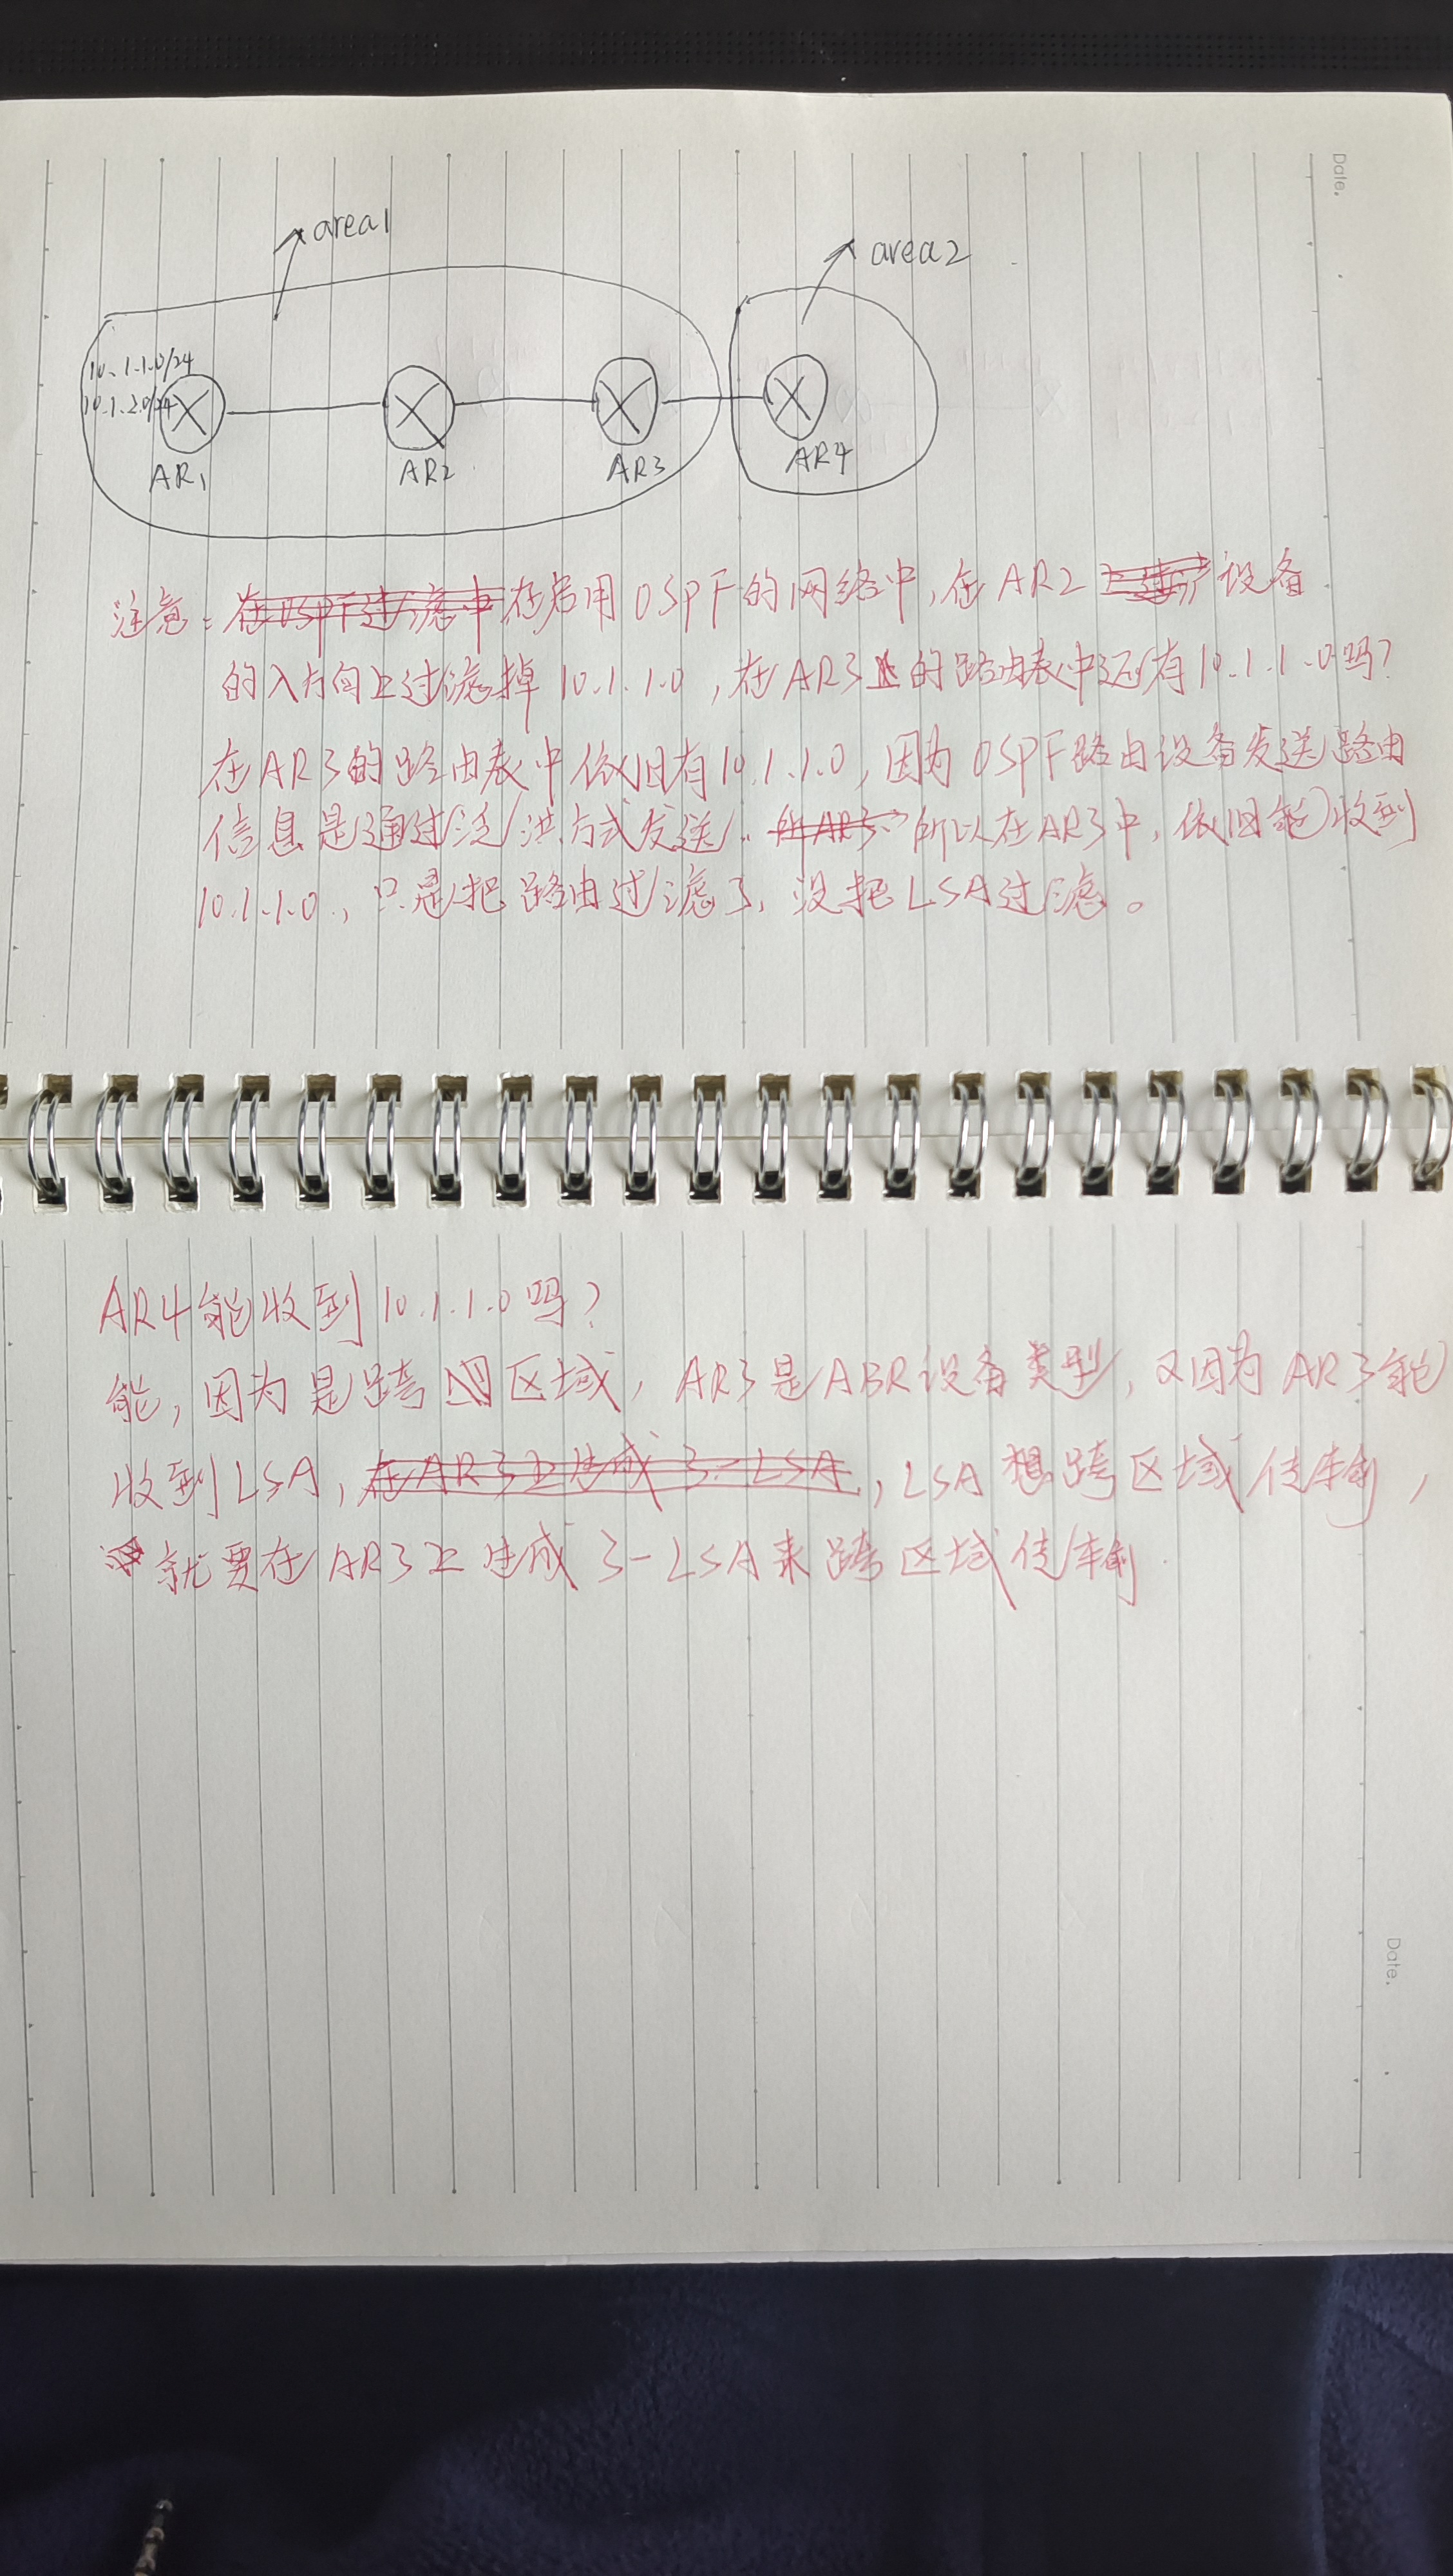 Date.
area1
area2
10.1.1.0/24
10.1.2.0/24
AR1
AR2
AR3
AR4
注意：在OSPF过滤中在启用OSPF的网络中，在AR2设备
的入方向上过滤掉10.1.1.0，在AR3的路由表中还有10.1.1.0吗？
在AR3的路由表中依旧有10.1.1.0，因为OSPF路由设备发送路由
信息是通过泛洪方式发送。所以在AR3中，依旧能收到
10.1.1.0，只是把路由过滤了，没把LSA过滤。
AR4能收到10.1.1.0吗？
能，因为是跨区域，AR3是ABR设备类型，又因为AR3能
收到LSA，在AR3上生成3-LSA，LSA想跨区域传输，
就要在AR3上生成3-LSA来跨区域传输
Date.